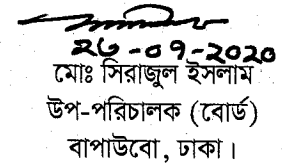 ২৬-০৭-২০২০
মোঃ সিরাজুল ইসলাম
উপ-পরিচালক (বোর্ড)
বাপাউবো, ঢাকা।